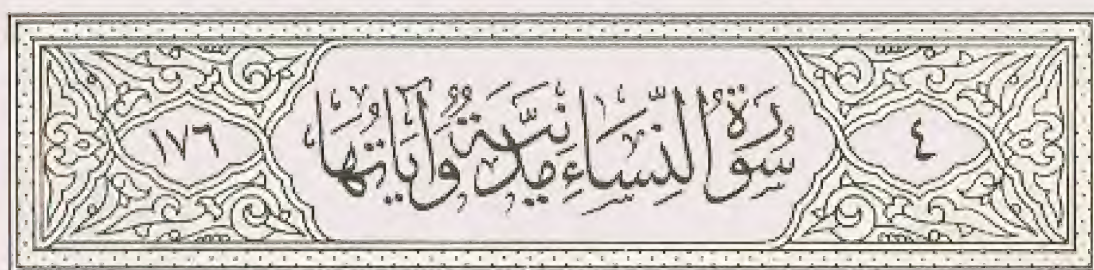 ٤ سُورَةُ النِّسَاءِ مَدَنِيَّةٌ وَآيَاتُهَا ١٧٦